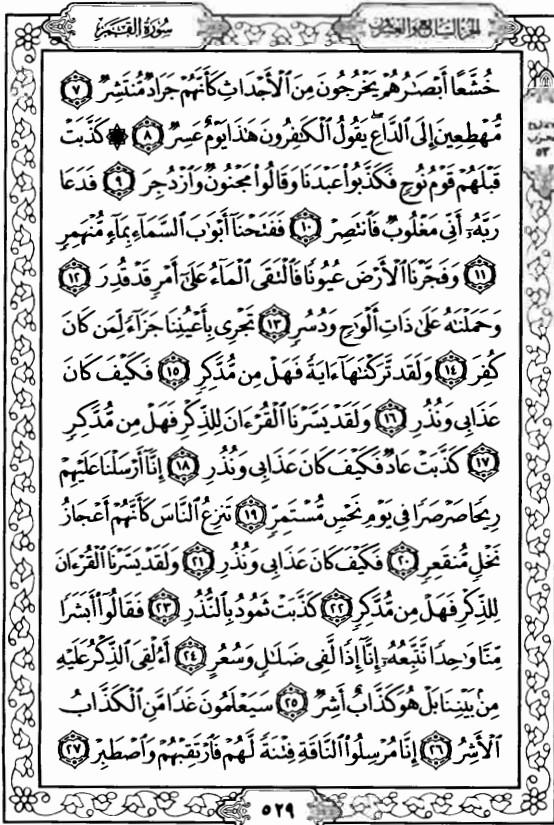 سُورَةُ القَمَرِ الجزء السابع والعشرون
خُشَّعًا أَبْصَٰرُهُمْ يَخْرُجُونَ مِنَ ٱلْأَجْدَاثِ كَأَنَّهُمْ جَرَادٌ مُّنتَشِرٌ ٧
مُّهْطِعِينَ إِلَى ٱلدَّاعِ ۖ يَقُولُ ٱلْكَٰفِرُونَ هَٰذَا يَوْمٌ عَسِرٌ ٨ ۞ كَذَّبَتْ
قَبْلَهُمْ قَوْمُ نُوحٍ فَكَذَّبُوا۟ عَبْدَنَا وَقَالُوا۟ مَجْنُونٌ وَٱزْدُجِرَ ٩ فَدَعَا
رَبَّهُۥٓ أَنِّى مَغْلُوبٌ فَٱنتَصِرْ ١٠ فَفَتَحْنَآ أَبْوَٰبَ ٱلسَّمَآءِ بِمَآءٍ مُّنْهَمِرٍ
١١ وَفَجَّرْنَا ٱلْأَرْضَ عُيُونًا فَٱلْتَقَى ٱلْمَآءُ عَلَىٰٓ أَمْرٍ قَدْ قُدِرَ ١٢
وَحَمَلْنَٰهُ عَلَىٰ ذَاتِ أَلْوَٰحٍ وَدُسُرٍ ١٣ تَجْرِى بِأَعْيُنِنَا جَزَآءً لِّمَن كَانَ
كُفِرَ ١٤ وَلَقَد تَّرَكْنَٰهَآ ءَايَةً فَهَلْ مِن مُّدَّكِرٍ ١٥ فَكَيْفَ كَانَ
عَذَابِى وَنُذُرِ ١٦ وَلَقَدْ يَسَّرْنَا ٱلْقُرْءَانَ لِلذِّكْرِ فَهَلْ مِن مُّدَّكِرٍ
١٧ كَذَّبَتْ عَادٌ فَكَيْفَ كَانَ عَذَابِى وَنُذُرِ ١٨ إِنَّآ أَرْسَلْنَا عَلَيْهِمْ
رِيحًا صَرْصَرًا فِى يَوْمِ نَحْسٍ مُّسْتَمِرٍّ ١٩ تَنزِعُ ٱلنَّاسَ كَأَنَّهُمْ أَعْجَازُ
نَخْلٍ مُّنقَعِرٍ ٢٠ فَكَيْفَ كَانَ عَذَابِى وَنُذُرِ ٢١ وَلَقَدْ يَسَّرْنَا ٱلْقُرْءَانَ
لِلذِّكْرِ فَهَلْ مِن مُّدَّكِرٍ ٢٢ كَذَّبَتْ ثَمُودُ بِٱلنُّذُرِ ٢٣ فَقَالُوٓا۟ أَبَشَرًا
مِّنَّا وَٰحِدًا نَّتَّبِعُهُۥٓ إِنَّآ إِذًا لَّفِى ضَلَٰلٍ وَسُعُرٍ ٢٤ أَءُلْقِىَ ٱلذِّكْرُ عَلَيْهِ
مِنۢ بَيْنِنَا بَلْ هُوَ كَذَّابٌ أَشِرٌ ٢٥ سَيَعْلَمُونَ غَدًا مَّنِ ٱلْكَذَّابُ
ٱلْأَشِرُ ٢٦ إِنَّا مُرْسِلُوا۟ ٱلنَّاقَةِ فِتْنَةً لَّهُمْ فَٱرْتَقِبْهُمْ وَٱصْطَبِرْ ٢٧
٥٢٩
٥٣